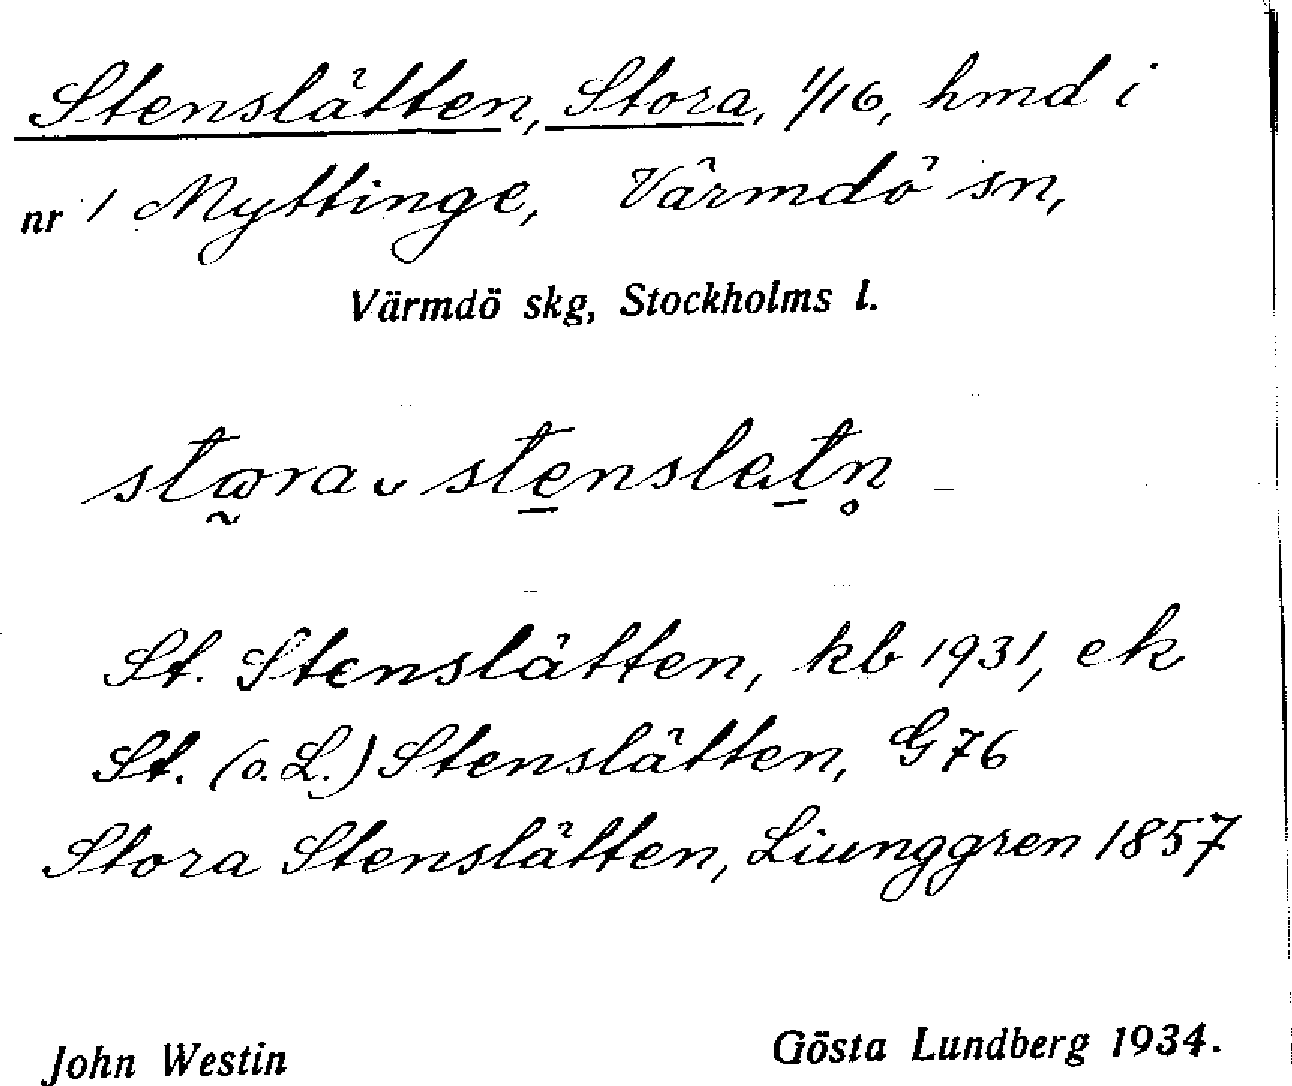 Stenslätten, Stora, 1/16, hmd i
nr 1 Myttinge, Värmdö sn,
Värmdö skg, Stockholms l.
St. Stenslätten, kb 1931, ek
St. (o. L.) Stenslätten, G 76
Stora Stenslätten, Liunggren 1857
John Westin
Gösta Lundberg 1934.